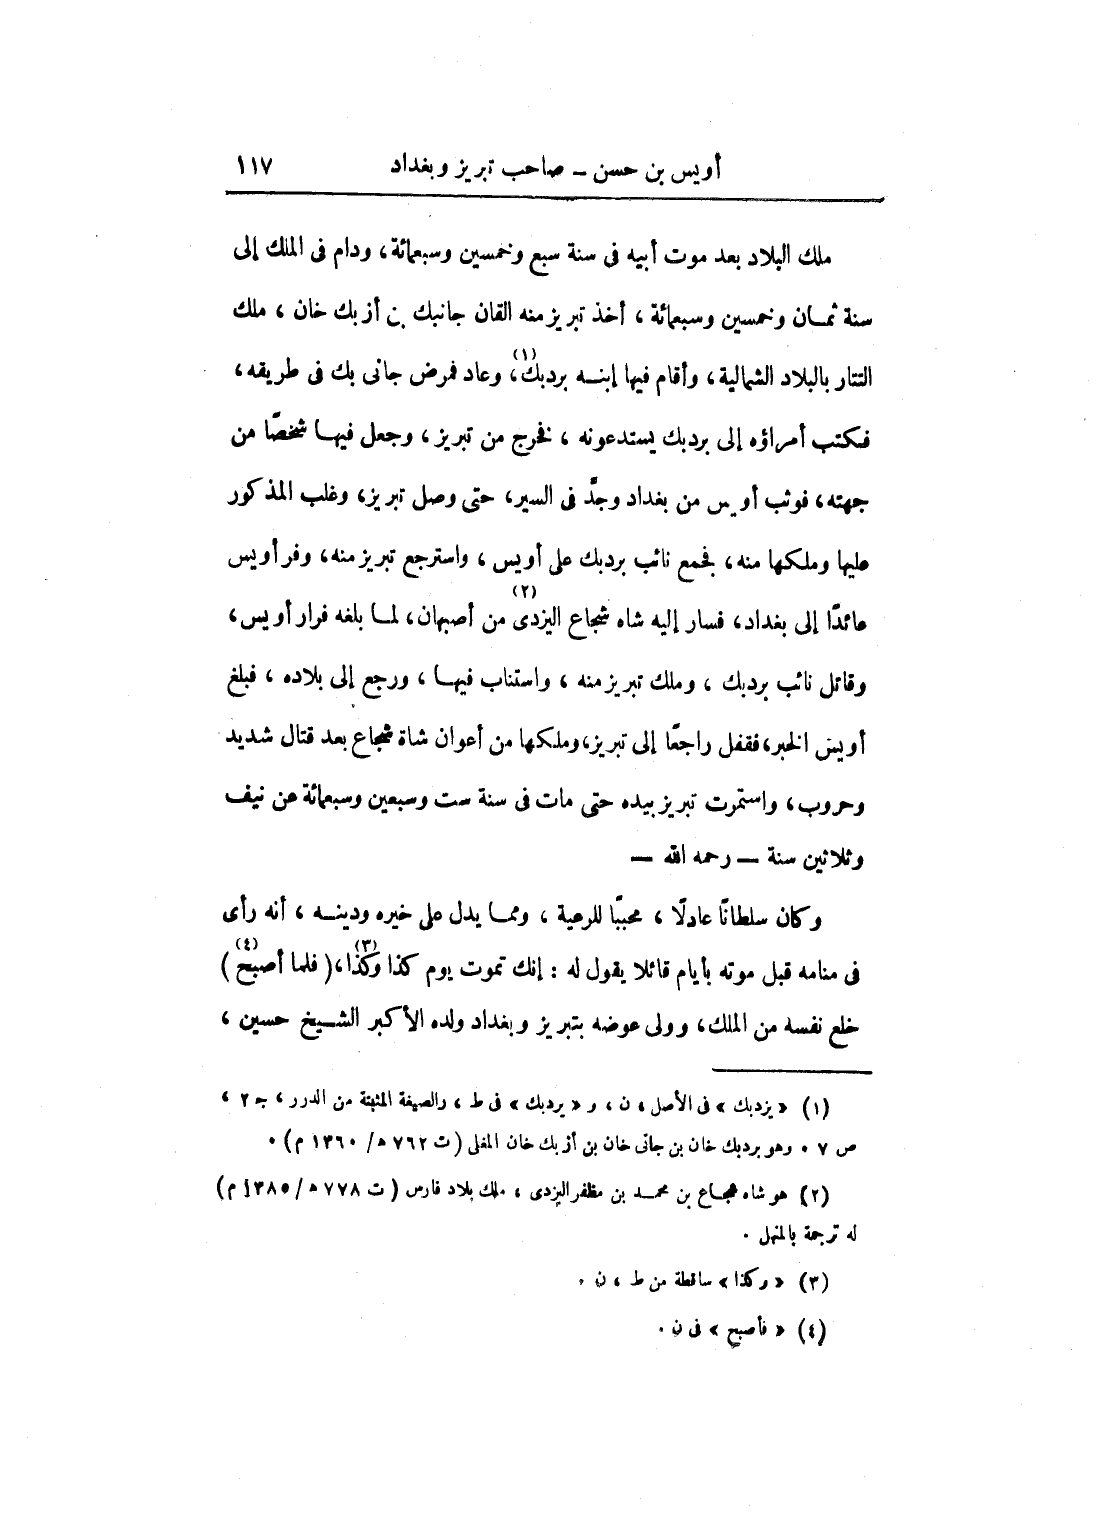 أويس بن حسن - صاحب تبريز وبغداد ١١٧
ملك البلاد بعد موت أبيه فى سنة سبع وخمسين وسبعمائة، ودام فى الملك إلى
سنة ثمـان وخمسين وسبعمائة ، أخذ تبريز منه القان جانبك بن أزبك خان ، ملك
التتار بالبلاد الشمالية، وأقام فيها إبنـه بردبك(١)، وعاد فمرض جانى بك فى طريقه،
فكتب أمراؤه إلى بردبك يستدعونه ، فخرج من تبريز، وجعل فيهـا شخصًّا من
جهته، فوثب أويس من بغداد وجدَّ فى السير، حتى وصل تبريز، وغلب المذكور
عليها وملكها منه، فجمع نائب بردبك على أويس ، واسترجع تبريز منه، وفر أويس
عائدًا إلى بغداد، فسار إليه شاه شجاع اليزدى(٢) من أصبهان، لمـا بلغه فرار أويس،
وقاتل نائب بردبك ، وملك تبريز منه ، واستناب فيهـا ، ورجع إلى بلاده ، فبلغ
أويس الخبر، فقفل راجعًا إلى تبريز، وملكها من أعوان شاة شجاع بعد قتال شديد
وحروب، واستمرت تبريز بيده حتى مات فى سنة ست وسبعين وسبعمائة عن نيف
وثلاثين سنة — رحمه الله —
وكان سلطانًا عادلًا ، محببًّا للرعية ، وممـا يدل على خيره ودينـه ، أنه رأى
فى منامه قبل موته بأيام قائلا يقول له : إنك تموت يوم كذا وكذا(٣)، ( فلما أصبح(٤) )
خلع نفسه من الملك، وولى عوضه بتبريز وبغداد ولده الأكبر الشـيخ حسين ،
(١) « يزدبك » فى الأصل ، ن ، و « يردبك » فى ط ، والصيغة المثبتة من الدرر ، جـ ٢ ،
ص ٧ . وهو بردبك خان بن جانى خان بن أزبك خان المغلى ( ت ٧٦٢ هـ/ ١٣٦٠ م ) .
(٢) هو شاه شجـاع بن محمـد بن مظفر اليزدى ، ملك بلاد فارس ( ت ٧٧٨ هـ/ ١٣٨٥ م )
له ترجمة بالمنهل .
(٣) « وكذا » ساقطة من ط ، ن .
(٤) « فأصبح » فى ن .